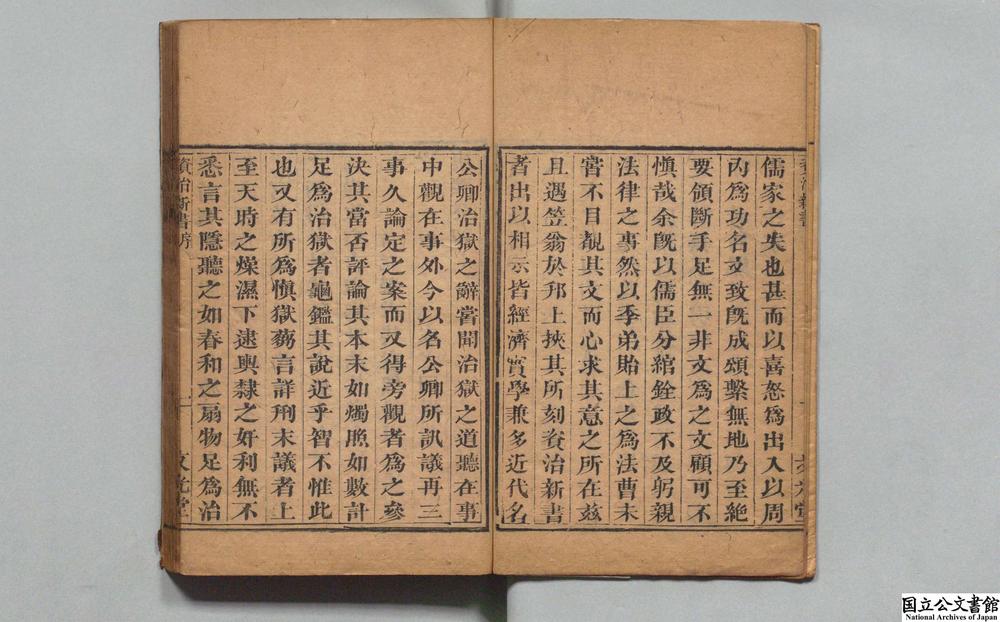 儒家之失也甚而以喜怒爲出入以周
內爲功名文致旣成頌繫無地乃至絕
要領斷手足無一非文爲之文顧可不
愼哉余旣以儒臣分綰銓政不及躬親
法律之事然以季弟貽上之爲法曹未
嘗不目覩其文而心求其意之所在茲
且遇笠翁於邗上挾其所刻資治新書
者出以相示皆經濟實學兼多近代名
公卿治獄之辭嘗聞治獄之道聽在事
中觀在事外今以名公卿所訊議再三
事久論定之案而又得旁觀者爲之參
決其當否評論其本末如燭照如數計
足爲治獄者龜鑑其說近乎智不惟此
也又有所爲愼獄蒭言詳刑末議者上
至天時之燥濕下逮輿隸之奸利無不
悉言其隱聽之如春和之扇物足爲治
資治新書序
文光堂
国立公文書館
National Archives of Japan